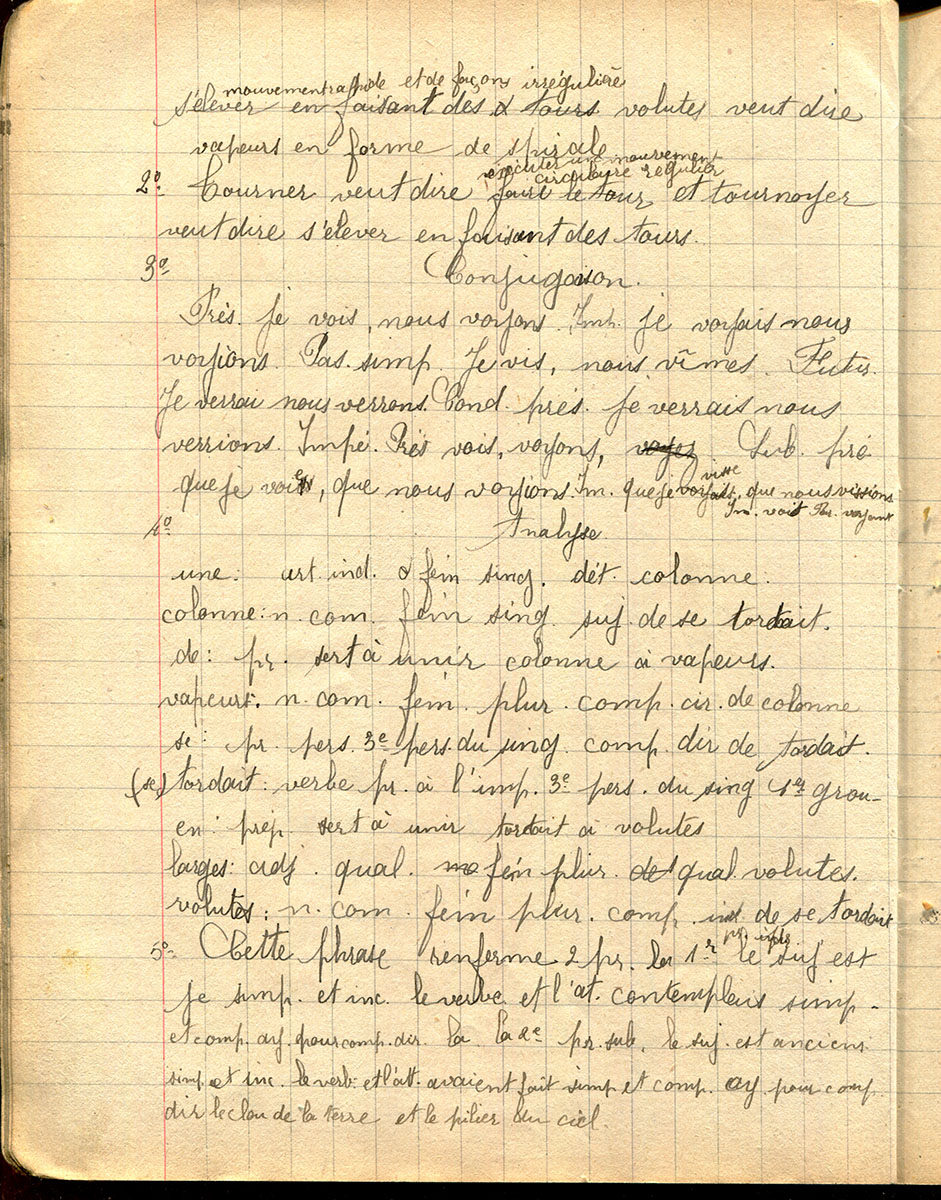 mouvement rapide et de façons irrégulière
s'élever en faisant des tours volutes veut dire
vapeurs en forme de spirale
exécuter un mouvement
circulaire régulier
2º Tourner veut dire faire le tour et tournoyer
veut dire s'élever en faisant des tours.
3º Conjugaison.
Prés. Je vois, nous voyons. Imp. Je voyais nous
voyions. Pas. simp. Je vis, nous vîmes. Futur.
Je verrai nous verrons. Cond. prés. Je verrais nous
verrions. Impé. Prés vois, voyons, voyez Sub. pré
visse
que je voie, que nous voyions. Im. que je voyais, que nous vissions
Im. voit Par. voyant
4º Analyse.
une: art. ind. fém sing. dét. colonne.
colonne: n. com. fém sing. suj. de se tordait.
de: pr. sert à unir colonne à vapeurs.
vapeurs: n. com. fém. plur. comp. cir. de colonne
se: pr. pers. 3e pers. du sing. comp. dir de tordait.
(se) tordait: verbe pr. à l'imp. 3e pers. du sing 1er grou-
en: prép sert à unir tordait à volutes
larges: adj. qual. fém plur. qual. volutes.
volutes: n. com. fém plur. comp. ind. de se tordait
5º Cette phrase renferme 2 pr. la 1re le suj est
je simp. et inc. le verbe et l'at. contemplais simp-
et comp. ay. pour comp. dir. la la 2e pr. sub. le suj. est anciens
simp. et inc. le verb. et l'att. avaient fait simp et comp. ay pour comp.
dir le clou de la terre et le pilier du ciel.